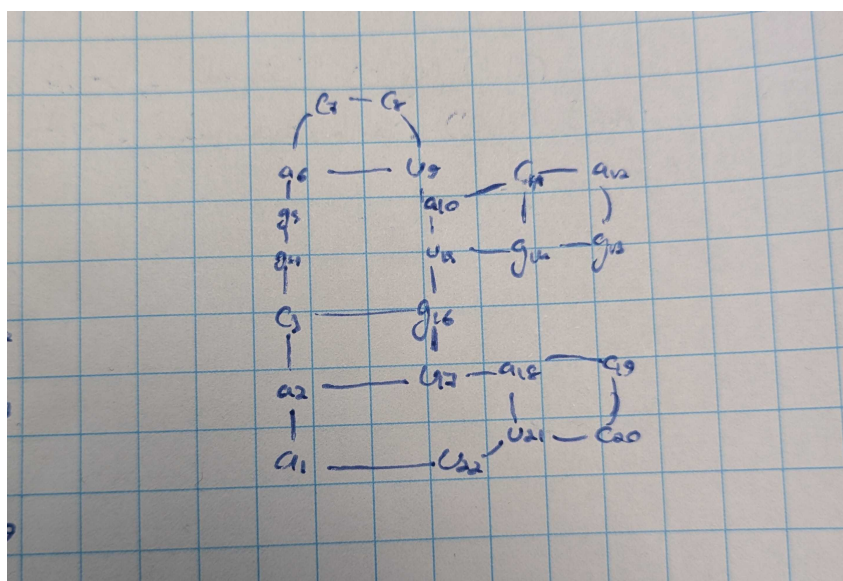 C7 C8
a6 U9 C11 a12
a10
g5
g4 U15 g14 g13
C3 g16
a2 U17 a18 C19
a1 U22 U21 C20